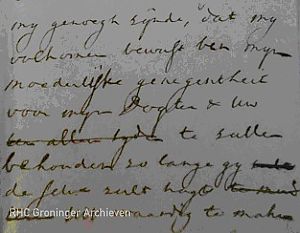 my genoegh sijnde, dat my
volkomen bewust ben myn
moederlijke genegentheit
voor myn Dogter & Uw
ten allen tyde te sulle
behouden, so lange gy
de selve sult
waardig te make
RHC Groninger Archieven